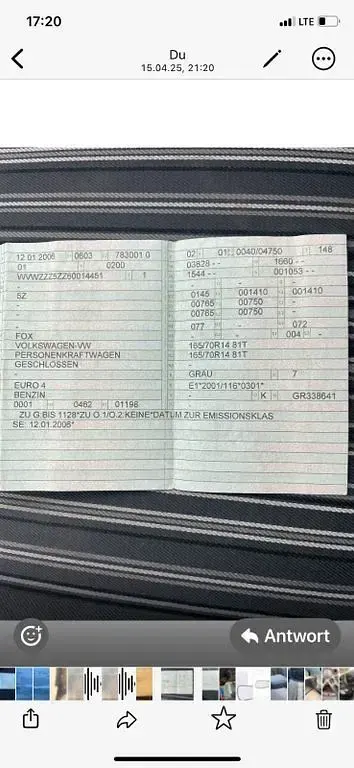 17:20
LTE
Du
15.04.25, 21:20
12.01.2006 0603 783001 0
01 0200
WVWZZZ5ZZ60014451 1
-
5Z
-
-
-
FOX
VOLKSWAGEN-VW
PERSONENKRAFTWAGEN
GESCHLOSSEN
-
EURO 4
BENZIN
0001 0462 01198
02 01 0040/04750 148
03828 - - 1660 - -
1544 - - 001053 - -
-
0145 001410 001410
00765 00750 -
00765 00750 -
077 - 072
- - 004 - -
165/70R14 81T
165/70R14 81T
-
GRAU 7
E1*2001/116*0301*
- K GR338641
ZU G:BIS 1128*ZU O.1/O.2:KEINE*DATUM ZUR EMISSIONSKLAS
SE: 12.01.2006*
Antwort